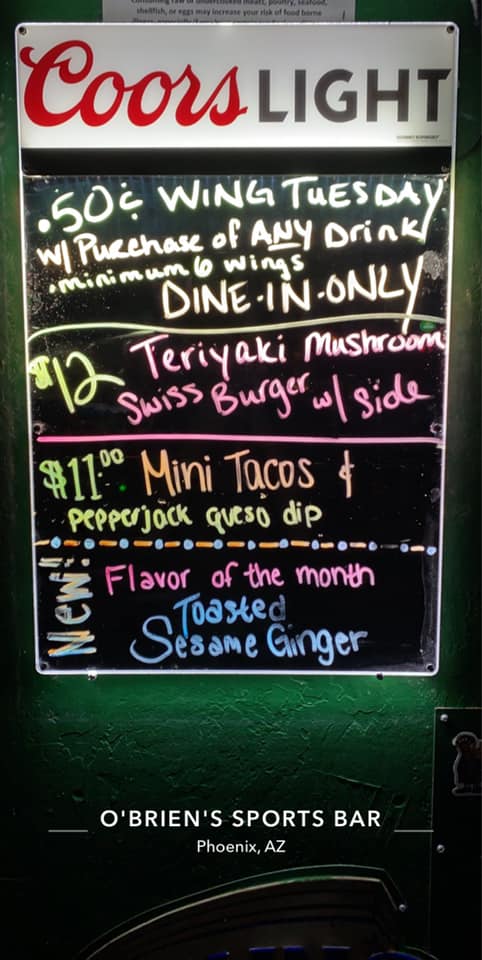 consuming raw or undercooked meats, poultry, seafood,
shellfish, or eggs may increase your risk of food borne
Coors LIGHT
.50¢ WING TUESDAY
w/ Purchase of ANY Drink
.minimum 6 wings
DINE-IN-ONLY
$12 Teriyaki Mushroom
Swiss Burger w/ side
$11.00 Mini Tacos &
pepperjack queso dip
New!! Flavor of the month
Toasted
Sesame Ginger
O'BRIEN'S SPORTS BAR
Phoenix, AZ